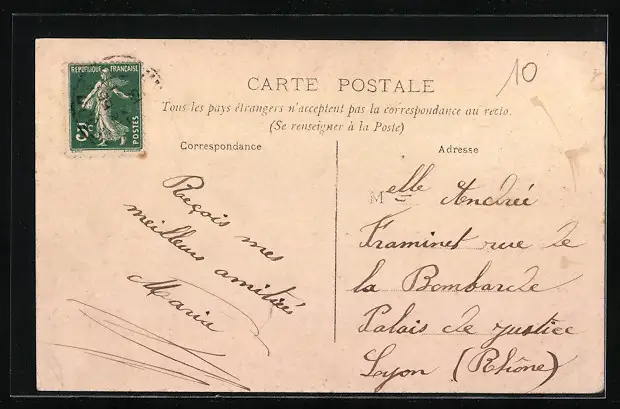 REPUBLIQUE FRANÇAISE
5c
POSTES
10
CARTE POSTALE
Tous les pays étrangers n'acceptent pas la correspondance au recto.
(Se renseigner à la Poste)
Correspondance
Reçois mes
meilleurs amitiés
Maria
Adresse
Melle Andrée
Framinet rue de
la Bombarde
Palais de justice
Lyon (Rhône)